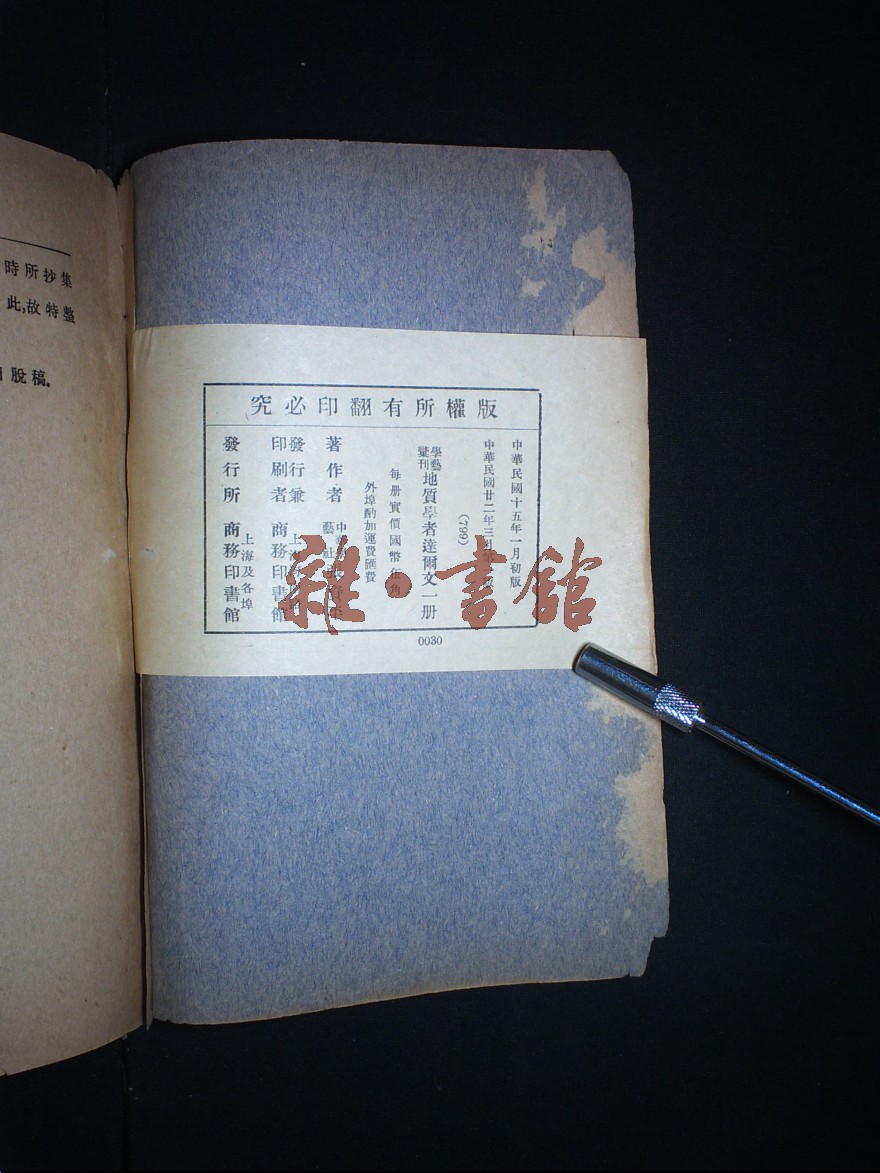 時所抄集
此,故特整
脫稿。
版權所有翻印必究
中華民國十五年一月初版
中華民國廿二年三
版
(799)
學藝彙刊
地質學者達爾文一册
每册實價國幣伍角
外埠酌加運費匯費
著作者
發行兼印刷者
商務印書館
發行所
上海及各埠
商務印書館
0030
雜·書館